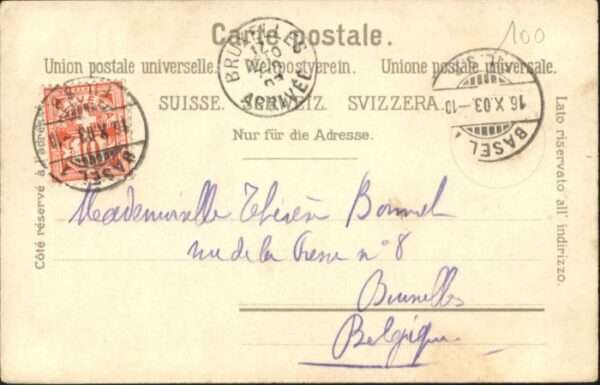 100
Carte postale.
Union postale universelle. Weltpostverein. Unione postale universale.
SUISSE. SCHWEIZ. SVIZZERA.
Nur für die Adresse.
Côté réservé à l'adresse.
Lato riservato all' indirizzo.
BRUXELLES
ARRIVÉE
BASEL
16.X.03.-10
BASEL
16.X.03
10
Mademoiselle Thérèse Bonnet
rue de la Presse n° 8
Bruxelles
Belgique